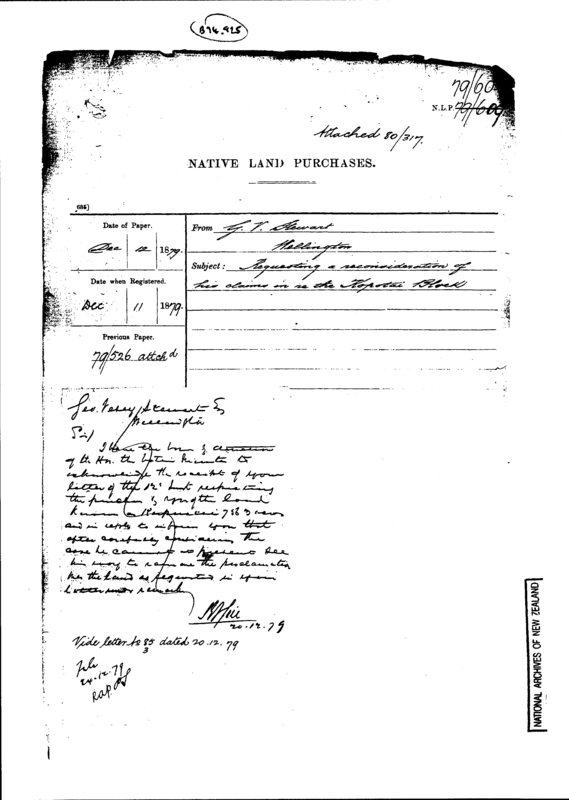 B74.925
79/60
N.L.P. 79/609
Attached 80/317.
NATIVE LAND PURCHASES.
Date of Paper.
Dec 12 1879.
From G. V. Stewart
Wellington
Subject: Requesting a reconsideration of
his claims in re the Kopotai Block
Date when Registered.
Dec 11 1879.
Previous Paper.
79/526 attchd
Geo. Vesey Stewart Esq
Wellington
Sir/
I have the honor
of the Hon. the Native Minister to
acknowledge the receipt of your
letter of the 12th inst respecting
the purchase by you of the land
known
and in reply to inform you that
after carefully considering the
case he cannot at present see
his way to remove the proclamation
the land as requested in your
letter
20.12.79
Vide letter No 85/3 dated 20.12.79
File
24.12.79
NATIONAL ARCHIVES OF NEW ZEALAND